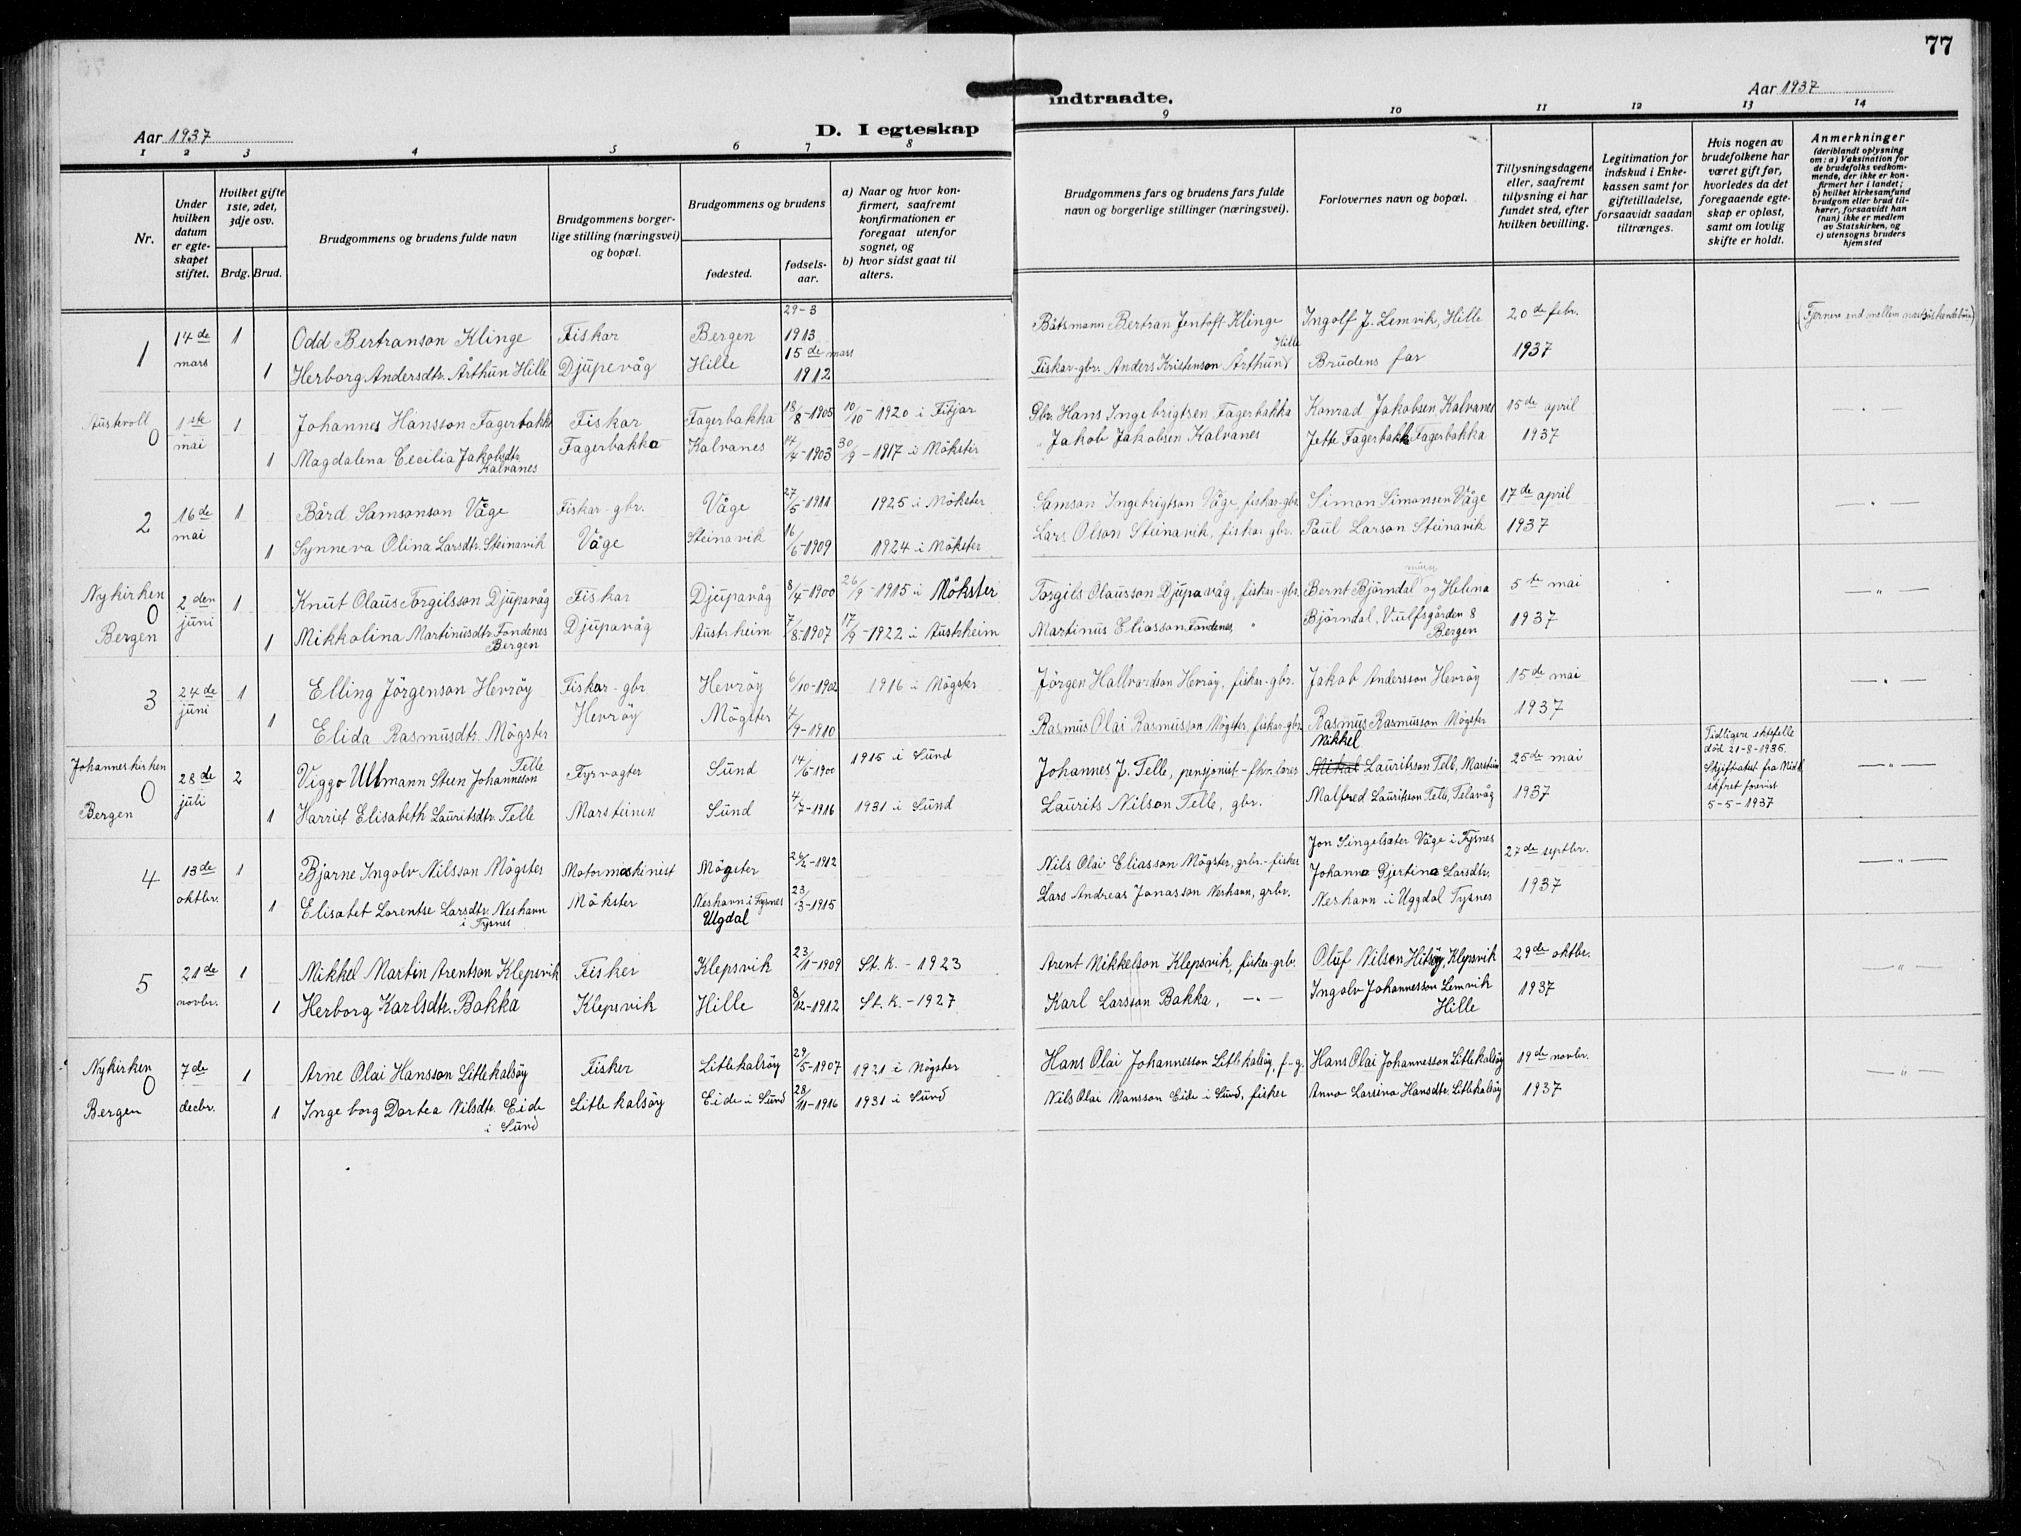 77
Aar 1937
D. I egteskap
indtraadte.
Aar 1937
1 2 3 4 5 6 7 8
9 10 11 12 13 14
Nr.
Under hvilken datum er egteskapet stiftet.
Hvilket gifte 1ste, 2det, 3dje osv.
Brdg. Brud.
Brudgommens og brudens fulde navn
Brudgommens borgerlige stilling (næringsvei) og bopæl.
Brudgommens og brudens
fødested.
fødsels-aar.
a) Naar og hvor konfirmert, saafremt konfirmationen er foregaat utenfor sognet, og
b) hvor sidst gaat til alters.
Brudgommens fars og brudens fars fulde navn og borgerlige stillinger (næringsvei).
Forlovernes navn og bopæl.
Tillysningsdagene eller, saafremt tillysning ei har fundet sted, efter hvilken bevilling.
Legitimation for indskud i Enkekassen samt for giftetilladelse, forsaavidt saadan tiltrænges.
Hvis nogen av brudefolkene har været gift før, hvorledes da det foregaaende egteskap er opløst, samt om lovlig skifte er holdt.
Anmerkninger
(deriblandt oplysning om: a) Vaksination for de brudefolks vedkommende, der ikke er konfirmert her i landet;
b) hvilket kirkesamfund brudgom eller brud tilhører, forsaavidt han (hun) ikke er medlem av Statskirken, og
c) utensogns bruders hjemsted
1 14de mars 1 Odd Bertranson Klinge Fiskar Bergen 29-3 1913 Båtsmann Bertran Jentoft Klinge Ingolf J. Lemvik, Hille 20de febr.
1 Herborg Andersdtr. Årthun Hille Djupevåg Hille 15de mars 1912 Fiskar-gbr. Anders Kristenson Årthun Hille Brudens far 1937
Austevoll O 1ste mai 1 Johannes Hansson Fagerbakka Fiskar Fagerbakka 18/8-1905 10/10-1920 i Fitjar Gbr. Hans Ingebrigtsen Fagerbakka Konrad Jakobsen Kalvanes 15de april — " —
1 Magdalena Cecilia Jakobsdtr. Kalvanes Fagerbakka Kalvanes 14/4-1903 30/9-1917 i Møkster " Jakob Jakobsen Kalvanes Jette Fagerbakk Fagerbakka 1937
2 16de mai 1 Bård Samsonson Våge Fiskar-gbr. Våge 27/5-1911 1925 i Møkster Samson Ingebrigtson Våge, fiskar-gbr. Simon Simonsen Våge 17de april — " —
1 Synneva Olina Larsdtr. Steinavik Våge Steinavik 16/6-1909 1924 i Møkster Lars Olson Steinavik, fiskar-gbr. Paul Larson Steinavik 1937
Nykirken O Bergen 2den juni 1 Knut Olaus Torgilsson Djupavåg Fiskar Djupavåg 8/4-1900 26/9-1915 i Møkster Torgils Olausson Djupavåg, fiskar-gbr. Bernt Bjørndal og Helina 5te mai — " —
1 Mikkolina Martinusdtr. Fondenes Bergen Djupavåg Austrheim 7/8-1907 17/9-1922 i Austrheim Martinus Eliasson Fondenes, " Bjørndal, Vulfsgården 8 Bergen 1937
3 24de juni 1 Elling Jørgenson Hevrøy Fiskar-gbr. Hevrøy 6/10-1902 1916 i Møgster Jørgen Hallvardson Hevrøy, fiskar-gbr. Jakob Andersson Hevrøy 15de mai — " —
1 Elida Rasmusdtr. Møgster Hevrøy Møgster 4/9-1910 Rasmus Olai Rasmusson Møgster, fiskar-gbr. Rasmus Rasmusson Møgster 1937
Johanneskirken O Bergen 28de juli 2 Viggo Ullmann Steen Johanneson Telle Fyrvagter Sund 14/6-1900 1915 i Sund Johannes J. Telle, pensjonist - fhv. lærer Nikkel Lauritsson Telle, Marstein 25de mai — " —
1 Harriet Elisabeth Lauritsdtr. Telle Marsteinen Sund 4/7-1916 1931 i Sund Laurits Nilson Telle, gbr. Malfred Lauritsson Telle, Telavåg 1937
Tidligere ektefelle død 21-8-1936. Skifteatest fra skifteret forevist 5-5-1937
4 13de oktbr. 1 Bjarne Ingolv Nilsson Møgster Motormaskinist Møgster 24/2-1912 Nils Olai Eliasson Møgster, grbr.-fisker Jon Singelsæter Våge i Tysnes 27de septbr. — " —
1 Elisabet Lorentse Larsdtr. Neshavn i Tysnes Møkster Neshavn i Tysnes Ugdal 23/3-1915 Lars Andreas Jonasson Neshavn, grbr. Johanna Gjertina Larsdtr. Neshavn i Uggdal Tysnes 1937
5 21de novbr. 1 Mikkel Martin Arentson Klepsvik Fisker Klepsvik 23/1-1909 St. k. - 1923 Arent Mikkelson Klepsvik, fisker-grbr. Oluf Nilson Hitsøy, Klepsvik 29de oktbr. — " —
1 Herborg Karlsdtr. Bakka Klepsvik Hille 8/12-1912 St. k. - 1927 Karl Larsson Bakka, — " — Ingolv Johannesson Lemvik Hille 1937
Nykirken O Bergen 7de decbr. 1 Arne Olai Hansson Litlekalsøy Fisker Litlekalsøy 29/5-1907 1921 i Møgster Hans Olai Johannesson Litlekalsøy, f-g. Hans Olai Johannesson Litlekalsøy 19de novbr. — " —
1 Ingeborg Dortea Nilsdtr. Eide i Sund Litlekalsøy Eide i Sund 28/11-1916 1931 i Sund Nils Olai Monsson Eide i Sund, fisker Anna Larsina Hansdtr. Litlekalsøy 1937